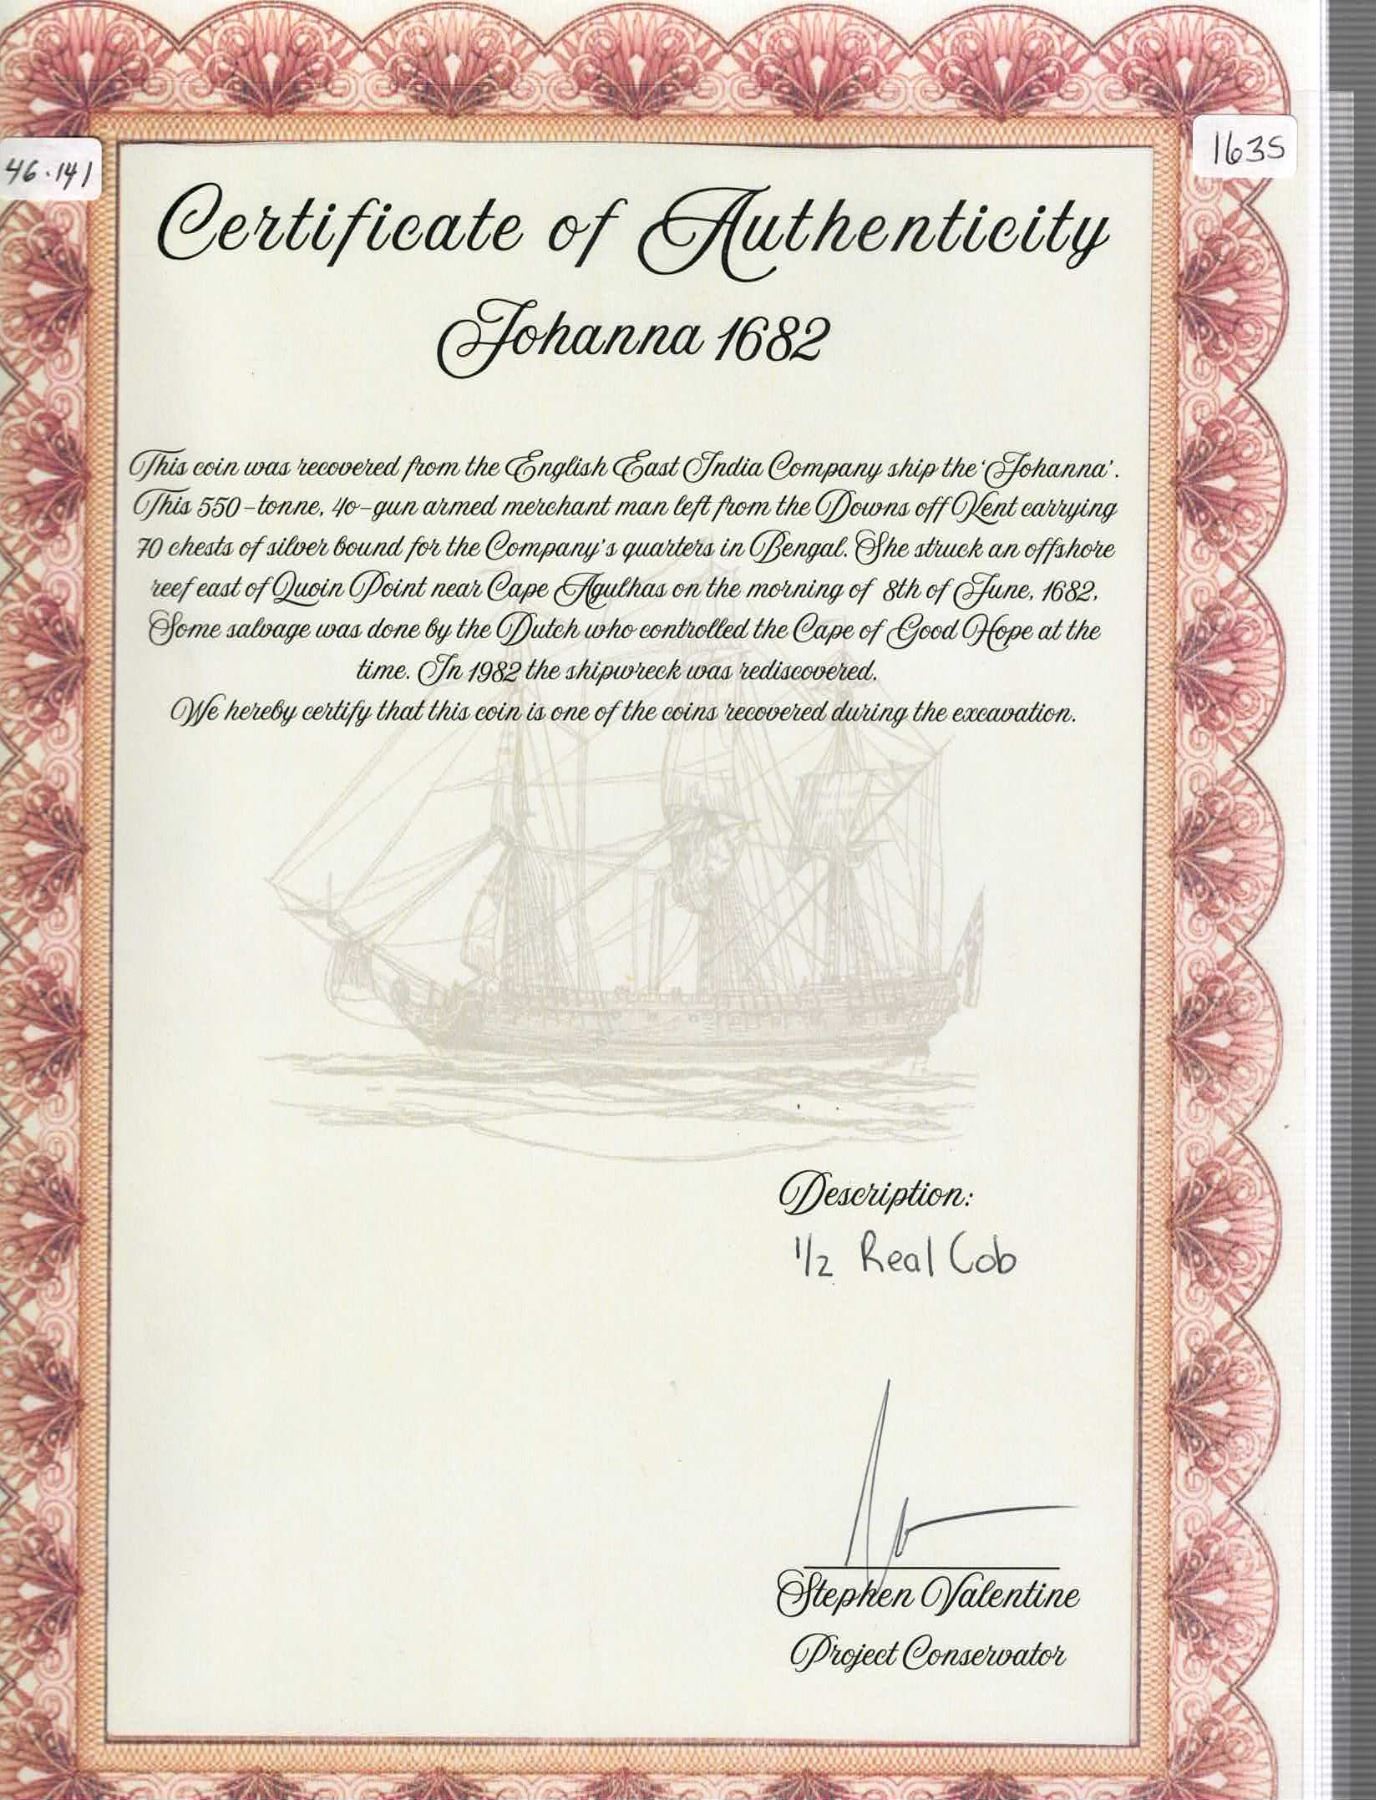 46.141
1635
Certificate of Authenticity
Johanna 1682
This coin was recovered from the English East India Company ship the 'Johanna'.
This 550-tonne, 40-gun armed merchant man left from the Downs off Kent carrying
70 chests of silver bound for the Company's quarters in Bengal. She struck an offshore
reef east of Quoin Point near Cape Agulhas on the morning of 8th of June, 1682.
Some salvage was done by the Dutch who controlled the Cape of Good Hope at the
time. In 1982 the shipwreck was rediscovered.
We hereby certify that this coin is one of the coins recovered during the excavation.
Description:
1/2 Real Cob
Stephen Valentine
Project Conservator